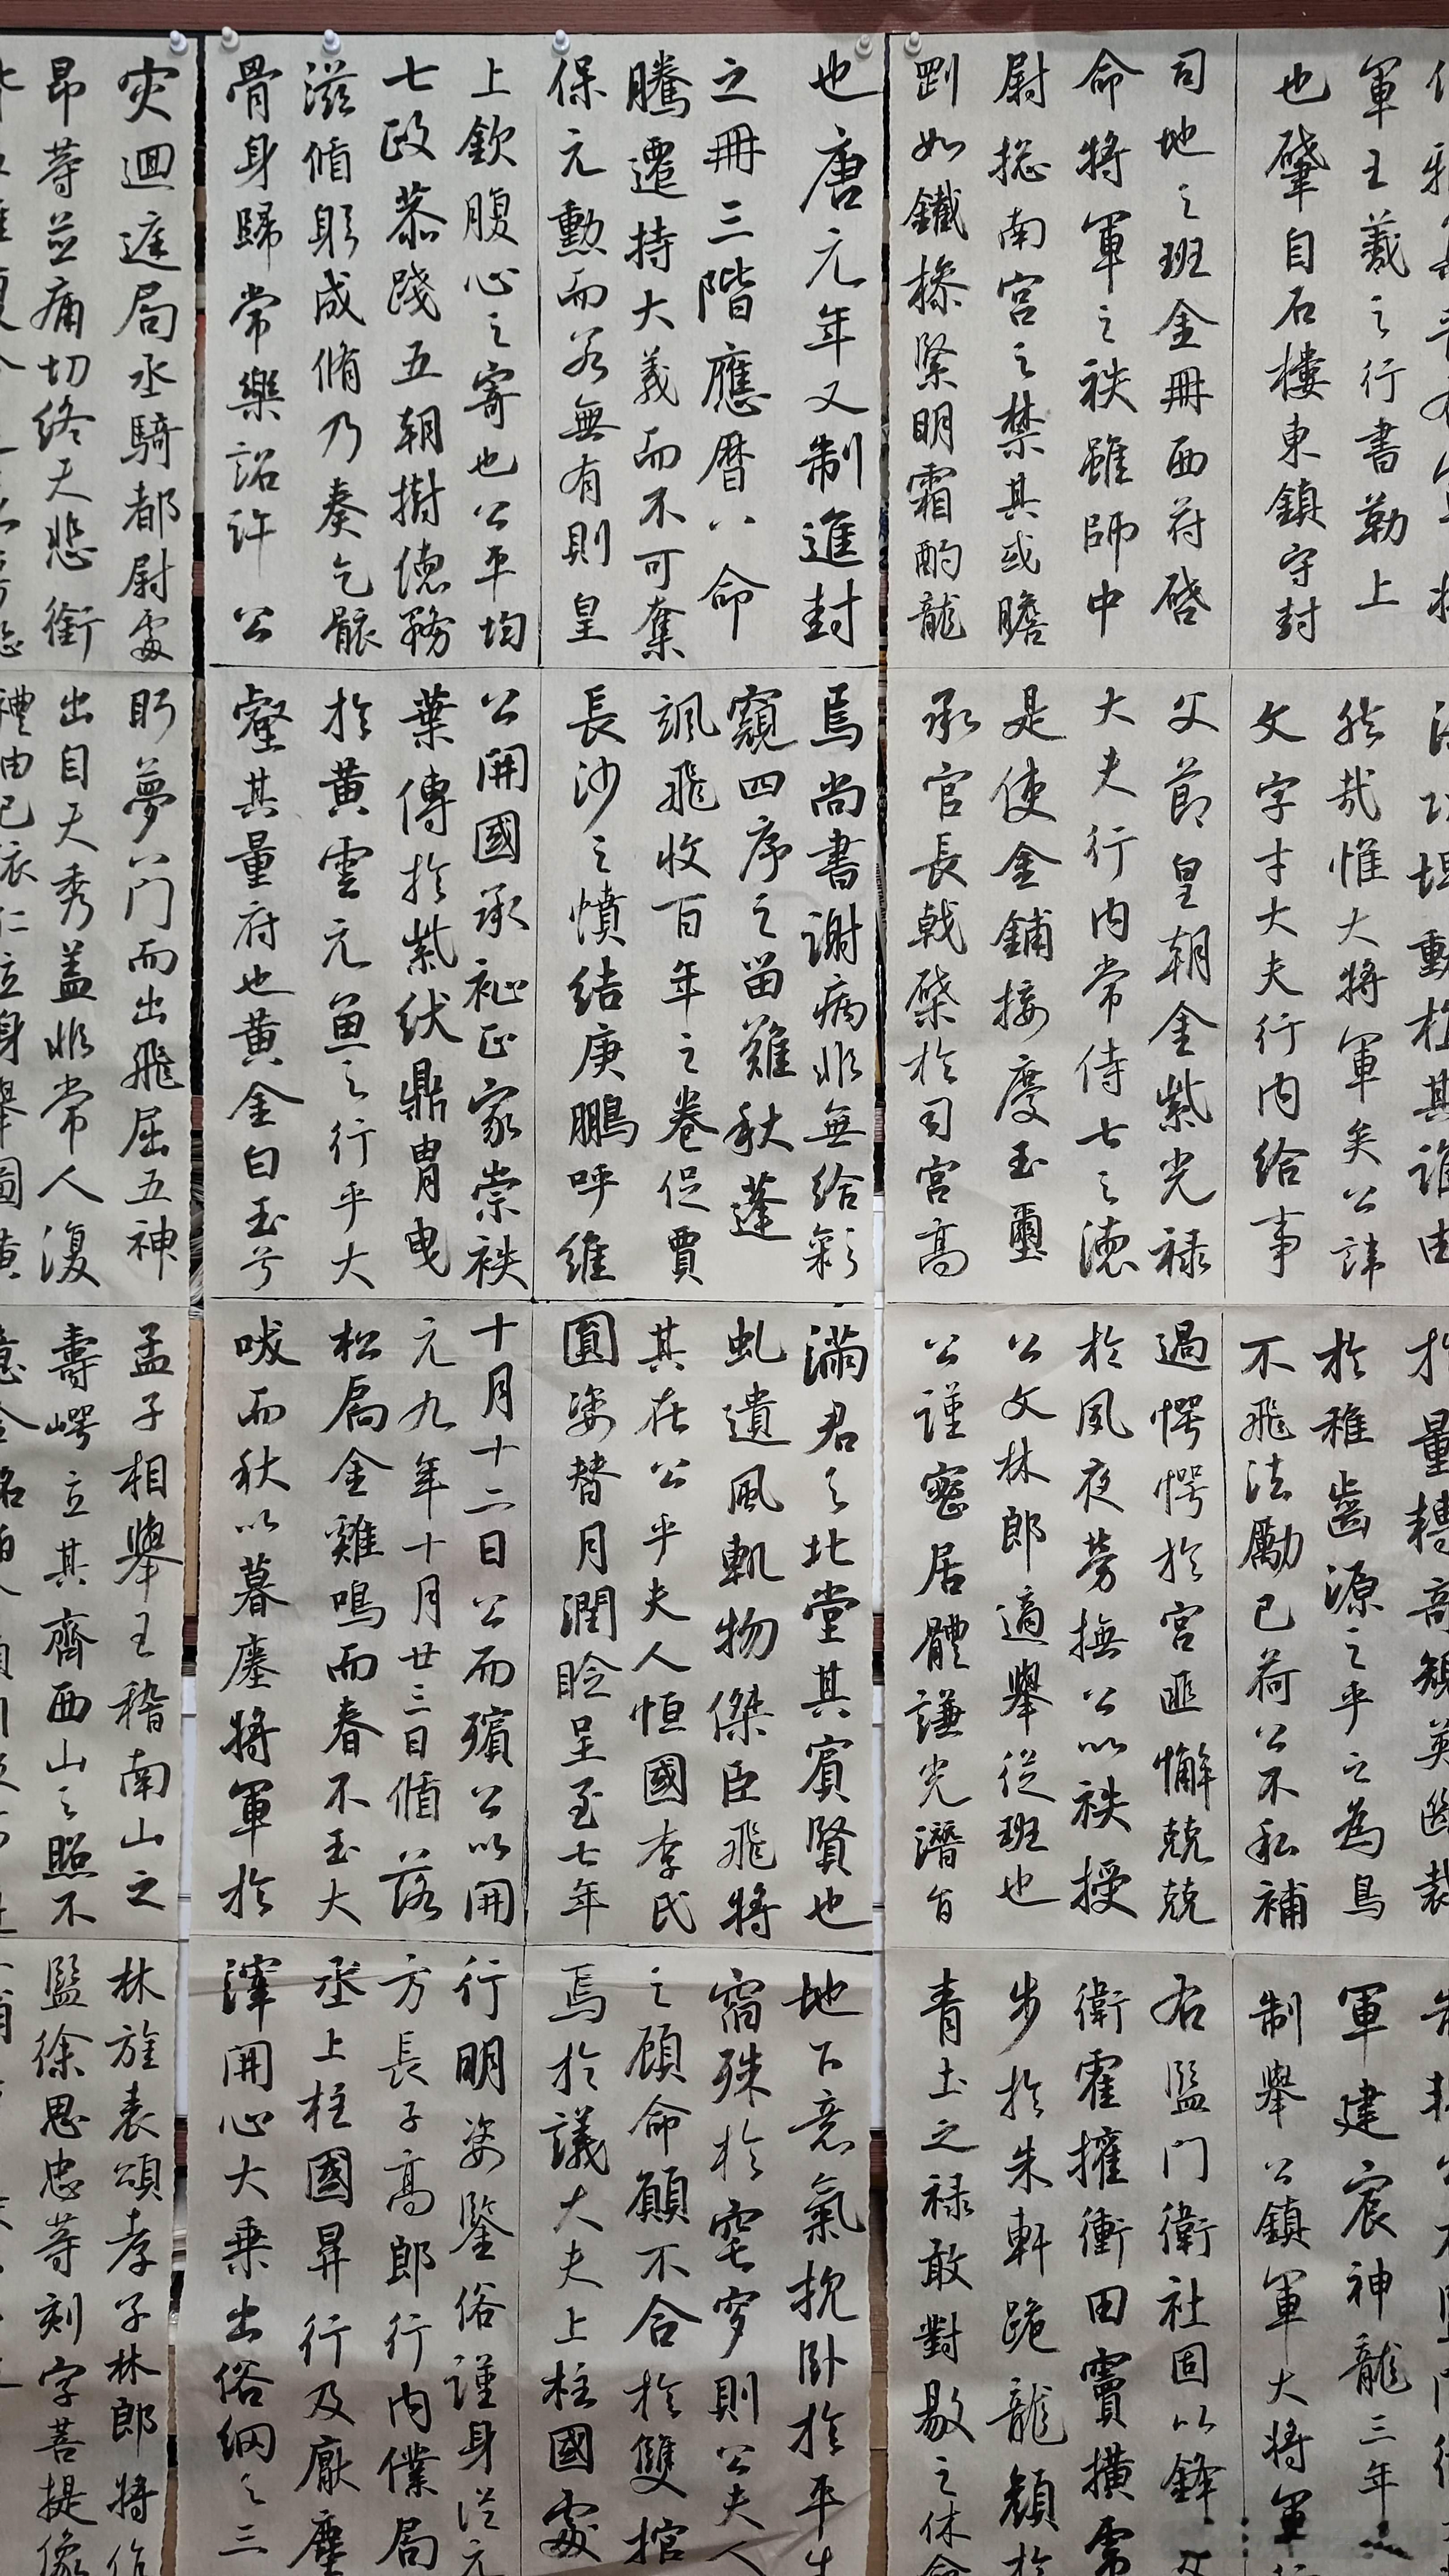 軍王羲之行書勒上
也肇自石樓東鎮守封
司地之班金冊西符啓
命將軍之秩雖師中
尉揔南宮之禁其或瞻
剛如鐵操緊明霜酌龍
也唐元年又制進封
之冊三階應曆八命
騰遷持大義而不可奪
保元勳而若無有則皇
上欽腹心之寄也公平均
七政恭踐五朝樹德務
滋脩躬成脩乃奏乞骸
骨身歸常樂詔許公
灾迴遑局丞騎都尉處
昂等並痛切終天悲銜
然哉惟大將軍矣公諱
文字才大夫行內給事
父節皇朝金紫光祿
大夫行內常侍七之德
是使金鋪接慶玉璽
承官長戟棨於司宮高
焉尚書謝病非無給彩
窺四序之留難秋蓬
颯飛收百年之卷促賈
長沙之憤結庚鵬呼維
公開國承祉正家崇秩
葉傳於紫紱鼎胄曳
於黃雲元魚之行乎大
壑其量府也黃金白玉兮
盻夢八門而出飛屈五神
出自天秀盖非常人復
於稚齒源之乎之為鳥
不飛法勵己荷公不私補
過愕愕於宮匪懈兢兢
於夙夜勞撫公以秩授
公文林郎適舉從班也
公謹密居體謙光潛旨
滿君之北堂其賓賢也
虬遺風軌物傑臣飛將
其在公乎夫人恒國李氏
圓姿替月潤臉呈至七年
十月十二日公而殯公以開
元九年十月廿三日循落
松扃金雞鳴而春不玉犬
吠而秋以暮塵將軍於
孟子相舉王稽南山之
壽崿立其齊西山之照不
軍建宸神龍三年
制舉公鎮軍大將軍
右監門衛社固以鋒
衛霍擁衝田竇橫
步於朱軒跪龍顏於
青土之祿敢對敭之休命
地下意氣抗卧於平生
宿殊於窀穸則公夫人
之顧命顧不合於雙棺
焉於議大夫上柱國處
行明姿鑒俗謹身從元
方長子高郎行內僕局
丞上柱國昇行及厭塵
滓開心大乘出俗網之三
林旌表頌孝子林郎將作
監徐思忠等刻字菩提像